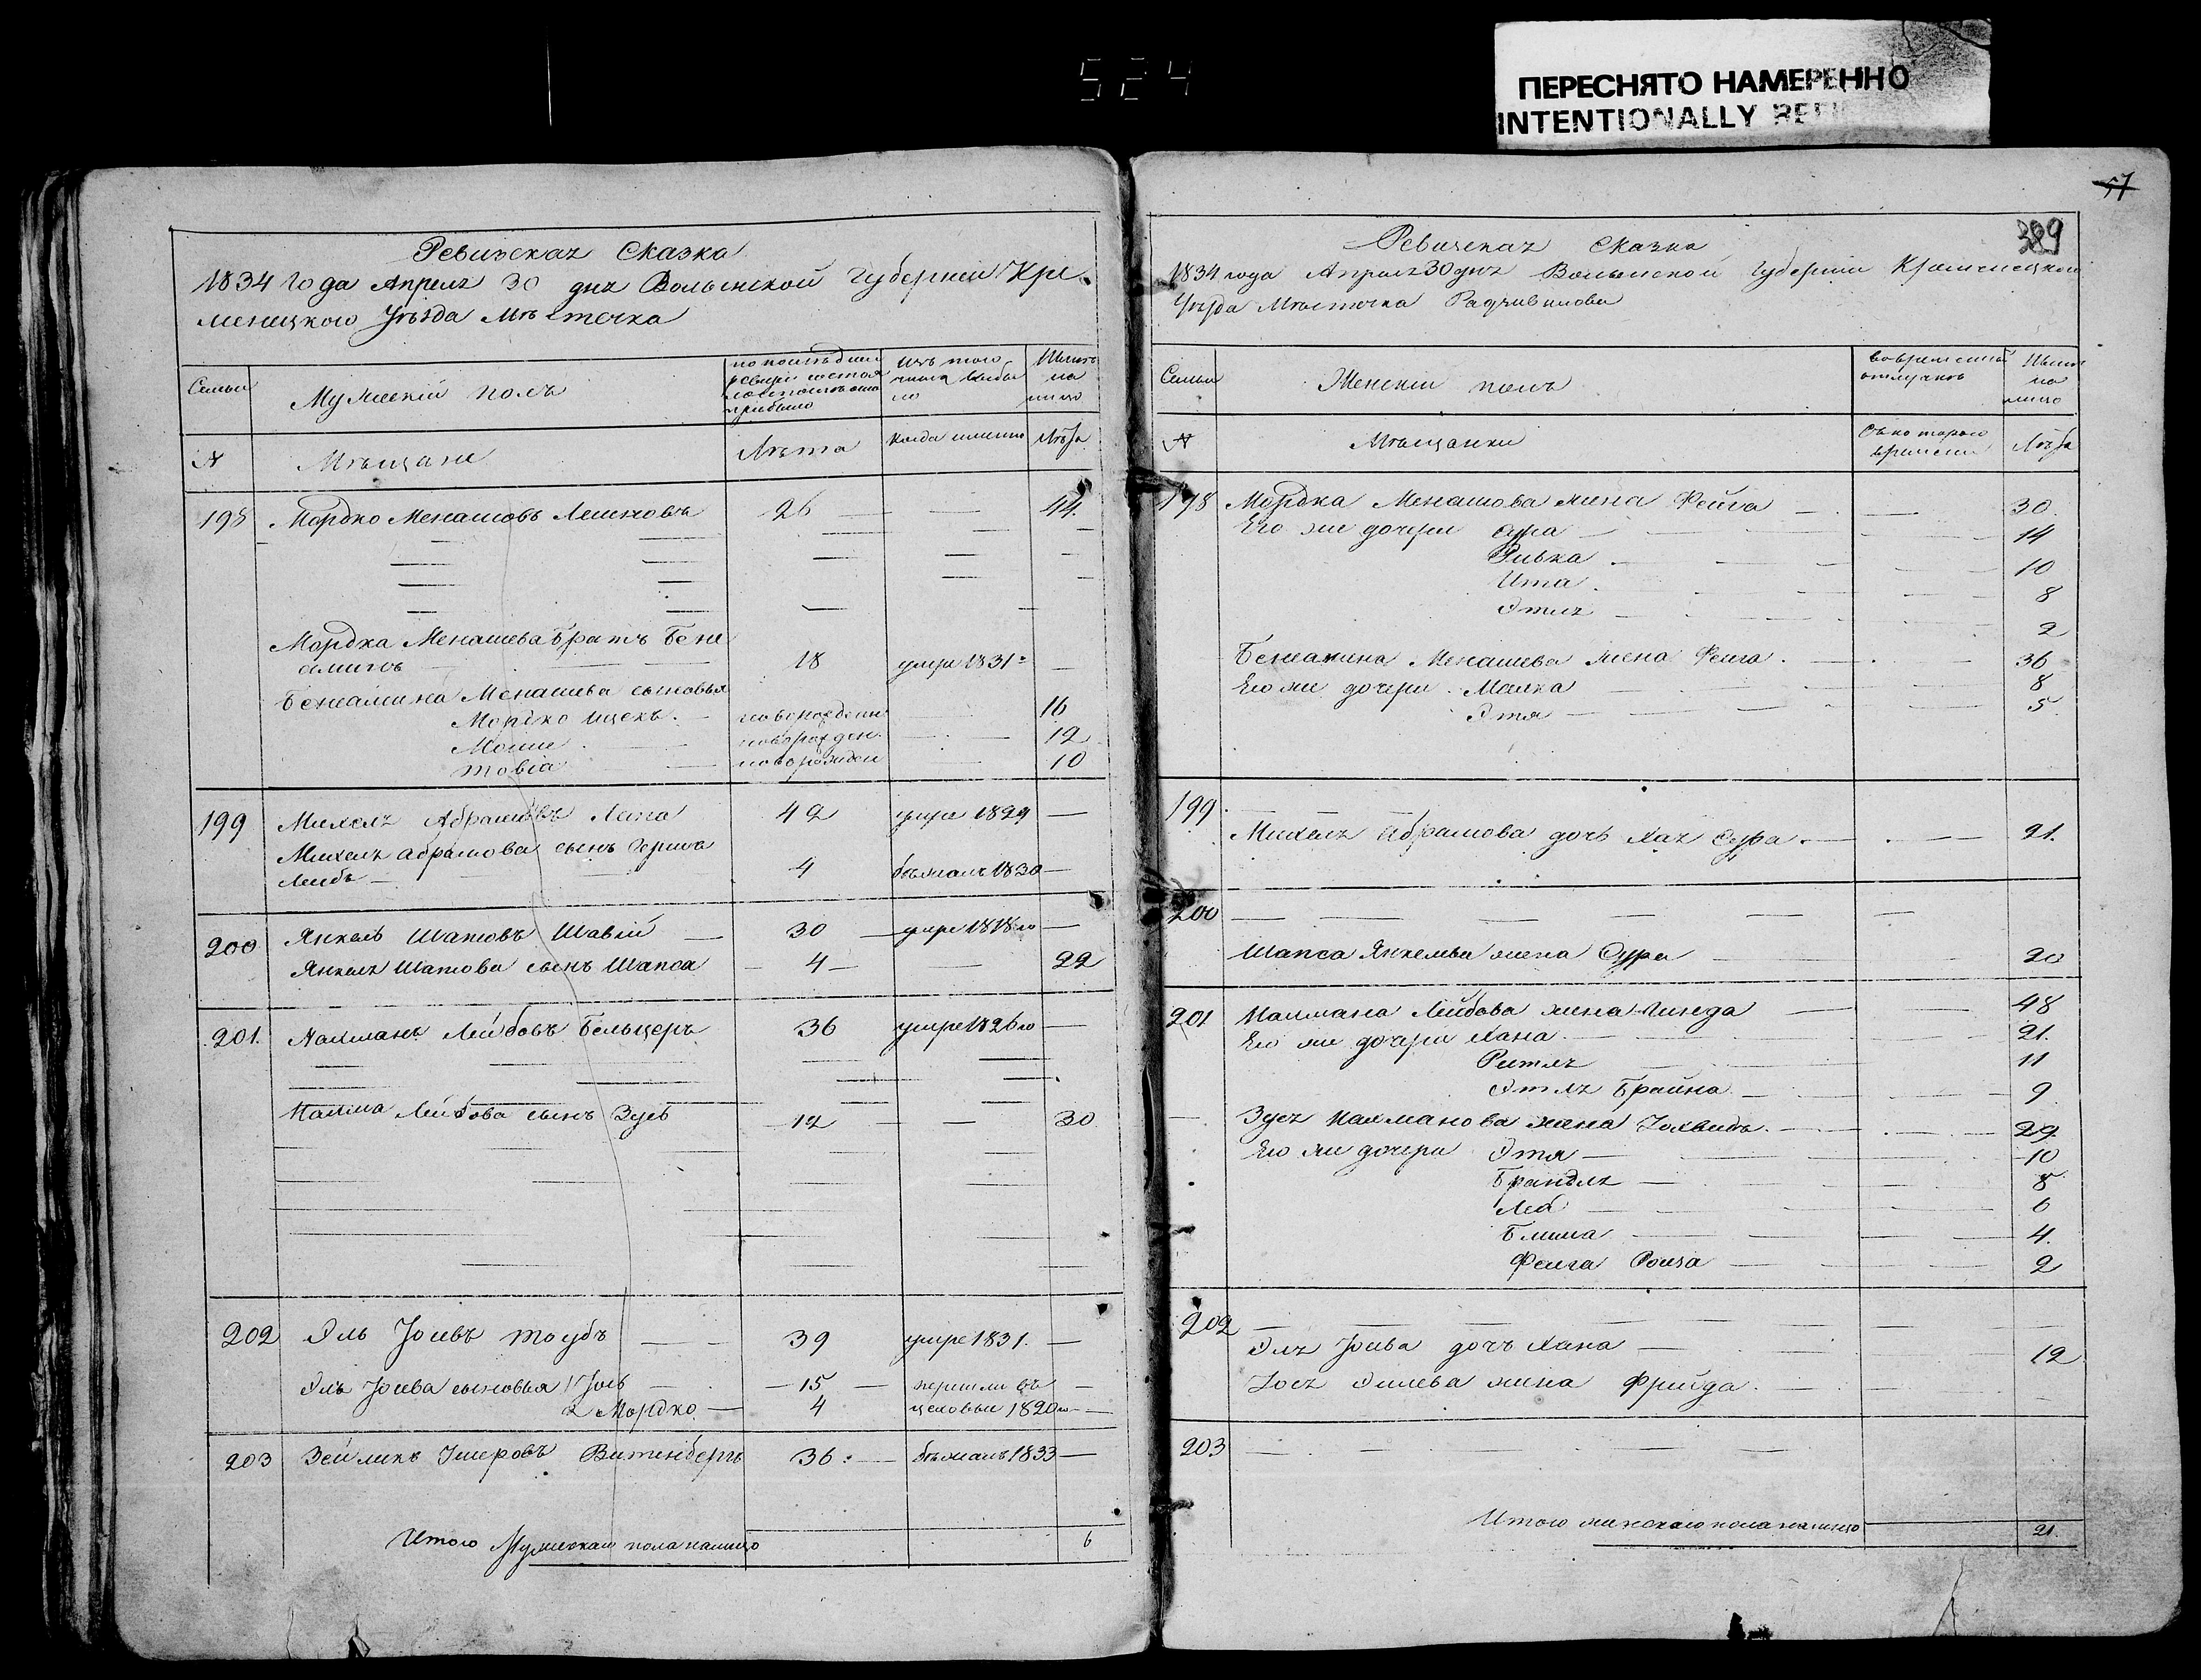 524
ПЕРЕСНЯТО НАМЕРЕННО
INTENTIONALLY
57
389
Ревизская Сказка
1834 Года Апреля 30 дня Волынской Губернии Кре
менецкого Уѣзда Мѣстечка
Семьи
Мужеский полъ
по послѣдней ревизии состояло и послѣ оной прибыло
Изъ того числа выбыло
Нынѣ на лицо
№
Мѣщане
Лѣта
Когда именно
Лѣта
198 Мордко Менашовъ 26 44
Мордка Менашева Братъ Бене
аминъ 18 умре 1831
Бенеамина Менашева сыновья
Мордко Ицекъ новорожден 16
Моше новорожден 12
Товіа новорожден 10
199 Михель Абрамовъ 42 умре 1829
Михеля Абрамова сынъ Герша
Лейбъ 4 бѣжалъ 1830
200 Янкель Шапсовъ 30 умре 1818го
Янкеля Шапсова сынъ Шапса 4 22
201. Нахманъ Лейбовъ Бельцеръ 36 умре 1826го
Нахма Лейбова сынъ Зусь 12 30
202 Эль Іосевъ Таубъ 39 умре 1831.
Эля Іосева сыновья 1 Іось 15 перешли въ
2 Мордко 4 цеховые 1820го
203 Зейликъ Ушеровъ Витенбергъ 36 бѣжалъ 1833
Итого Мужескаго пола налицо 6
Ревизская Сказка
1834 года Апреля 30 дня Волынской Губернии Кременецкой
Уѣзда Мѣстечка Радзивилова
Семьи
Женский полъ
во временной отлучкѣ
Нынѣ на лицо
№
Мѣщанки
Съ котораго времени
Лѣта
198 Мордка Менашова жена Фейга 30
Его же дочери Сура 14
Ривка 10
Ита 8
Этля 2
Бенеамина Менашева жена Фейга 36
Его же дочери Малка 8
Этя 5
199
Михеля Абрамова дочь Хая Сура 21.
200
Шапса Янкелева жена Сура 20
201 Нахмана Лейбова жена Гинда 48
Его же дочери Хана 21.
Рейтля 11
Этля Брайна 9
Зуся Нахманова жена Іохвидъ 29
Его же дочери Этя 10
Брандля 8
Лея 6
Блима 4.
Фейга Роиза 2
202
Эля Іосева дочь Хана 12
Іося Элиева жена Фрийда
203
Итого женскаго пола налицо 21.